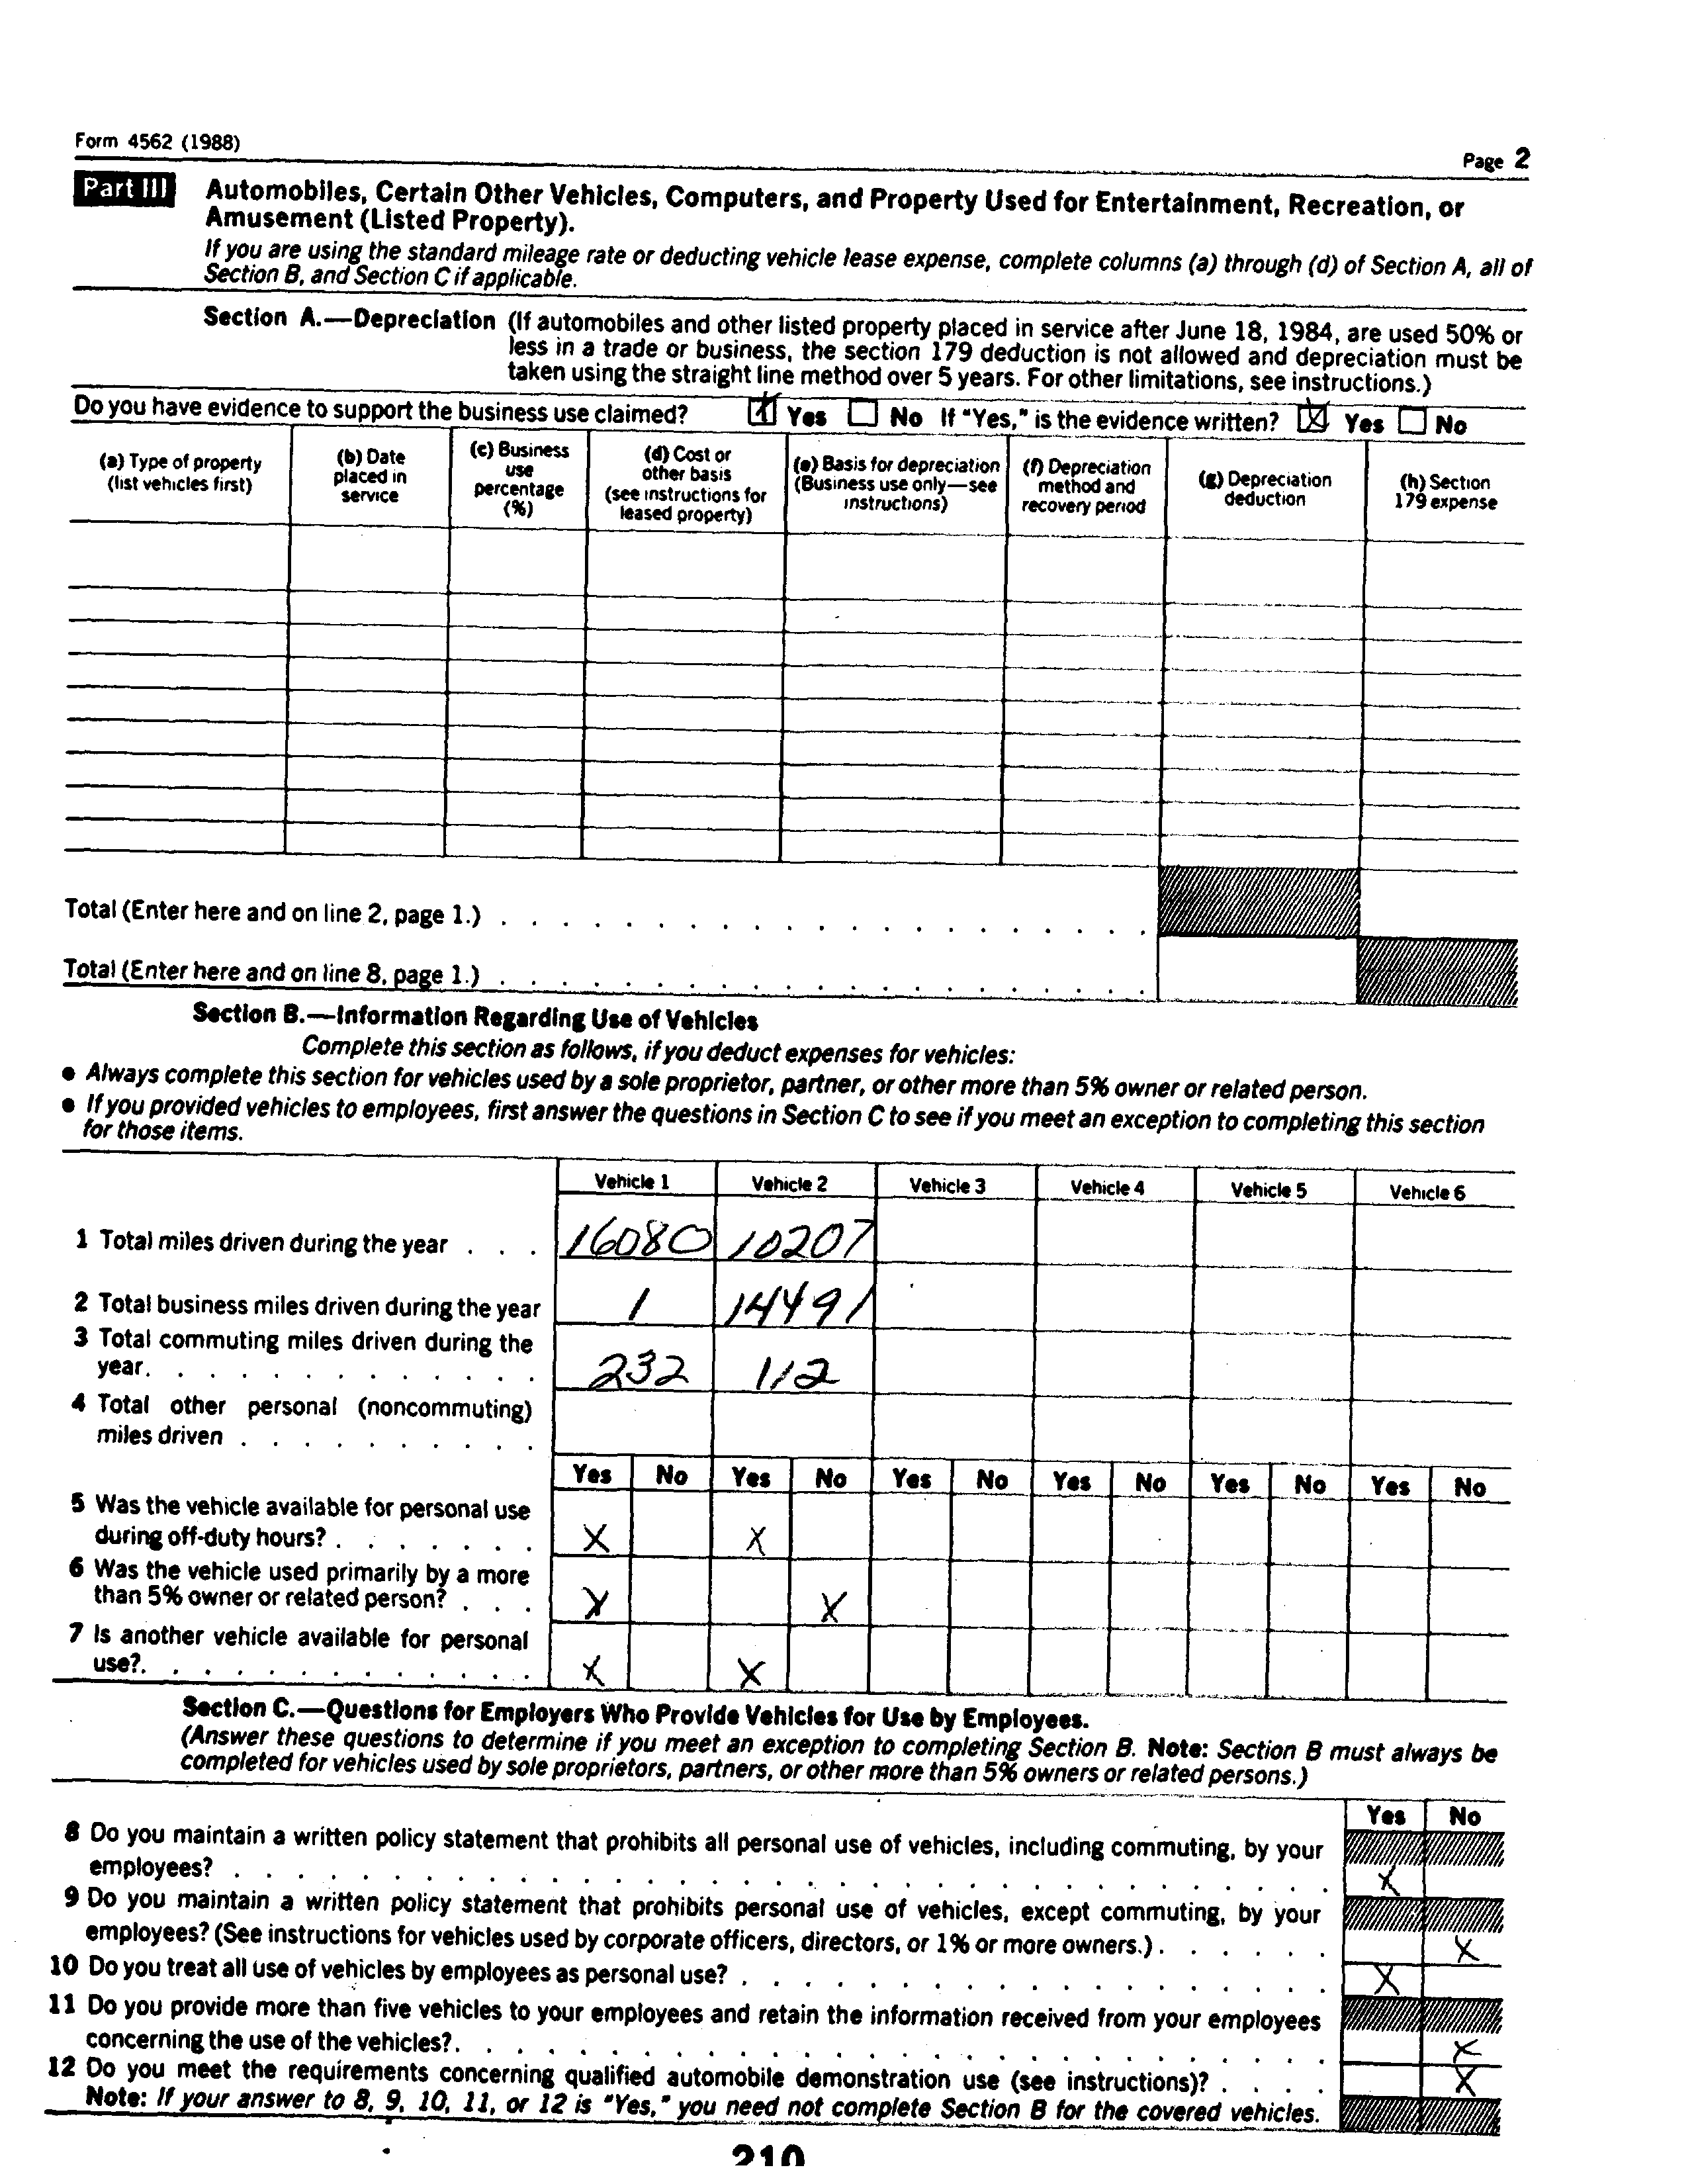 Form 4562 (1988)
Page 2
Part III Automobiles, Certain Other Vehicles, Computers, and Property Used for Entertainment, Recreation, or
Amusement (Listed Property).
If you are using the standard mileage rate or deducting vehicle lease expense, complete columns (a) through (d) of Section A, all of
Section B, and Section C if applicable.
Section A.—Depreciation (If automobiles and other listed property placed in service after June 18, 1984, are used 50% or
less in a trade or business, the section 179 deduction is not allowed and depreciation must be
taken using the straight line method over 5 years. For other limitations, see instructions.)
Do you have evidence to support the business use claimed? X Yes No If "Yes," is the evidence written? X Yes No
(a) Type of property
(list vehicles first)
(b) Date
placed in
service
(c) Business
use
percentage
(%)
(d) Cost or
other basis
(see instructions for
leased property)
(e) Basis for depreciation
(Business use only—see
instructions)
(f) Depreciation
method and
recovery period
(g) Depreciation
deduction
(h) Section
179 expense
Total (Enter here and on line 2, page 1.)
Total (Enter here and on line 8, page 1.)
Section B.—Information Regarding Use of Vehicles
Complete this section as follows, if you deduct expenses for vehicles:
● Always complete this section for vehicles used by a sole proprietor, partner, or other more than 5% owner or related person.
● If you provided vehicles to employees, first answer the questions in Section C to see if you meet an exception to completing this section
for those items.
Vehicle 1 Vehicle 2 Vehicle 3 Vehicle 4 Vehicle 5 Vehicle 6
1 Total miles driven during the year . . . 16080 10207
2 Total business miles driven during the year 1 14491
3 Total commuting miles driven during the
year. . . . . . . . . . . . . 232 112
4 Total other personal (noncommuting)
miles driven . . . . . . . . . .
Yes No Yes No Yes No Yes No Yes No Yes No
5 Was the vehicle available for personal use
during off-duty hours? . . . . . . . X X
6 Was the vehicle used primarily by a more
than 5% owner or related person? . . . X X
7 Is another vehicle available for personal
use?. . . . . . . . . . . . . X X
Section C.—Questions for Employers Who Provide Vehicles for Use by Employees.
(Answer these questions to determine if you meet an exception to completing Section B. Note: Section B must always be
completed for vehicles used by sole proprietors, partners, or other more than 5% owners or related persons.)
Yes No
8 Do you maintain a written policy statement that prohibits all personal use of vehicles, including commuting, by your
employees? X
9 Do you maintain a written policy statement that prohibits personal use of vehicles, except commuting, by your
employees? (See instructions for vehicles used by corporate officers, directors, or 1% or more owners.) . . . . . . X
10 Do you treat all use of vehicles by employees as personal use? X
11 Do you provide more than five vehicles to your employees and retain the information received from your employees
concerning the use of the vehicles?. X
12 Do you meet the requirements concerning qualified automobile demonstration use (see instructions)? . . . . X
Note: If your answer to 8, 9, 10, 11, or 12 is "Yes," you need not complete Section B for the covered vehicles.
210